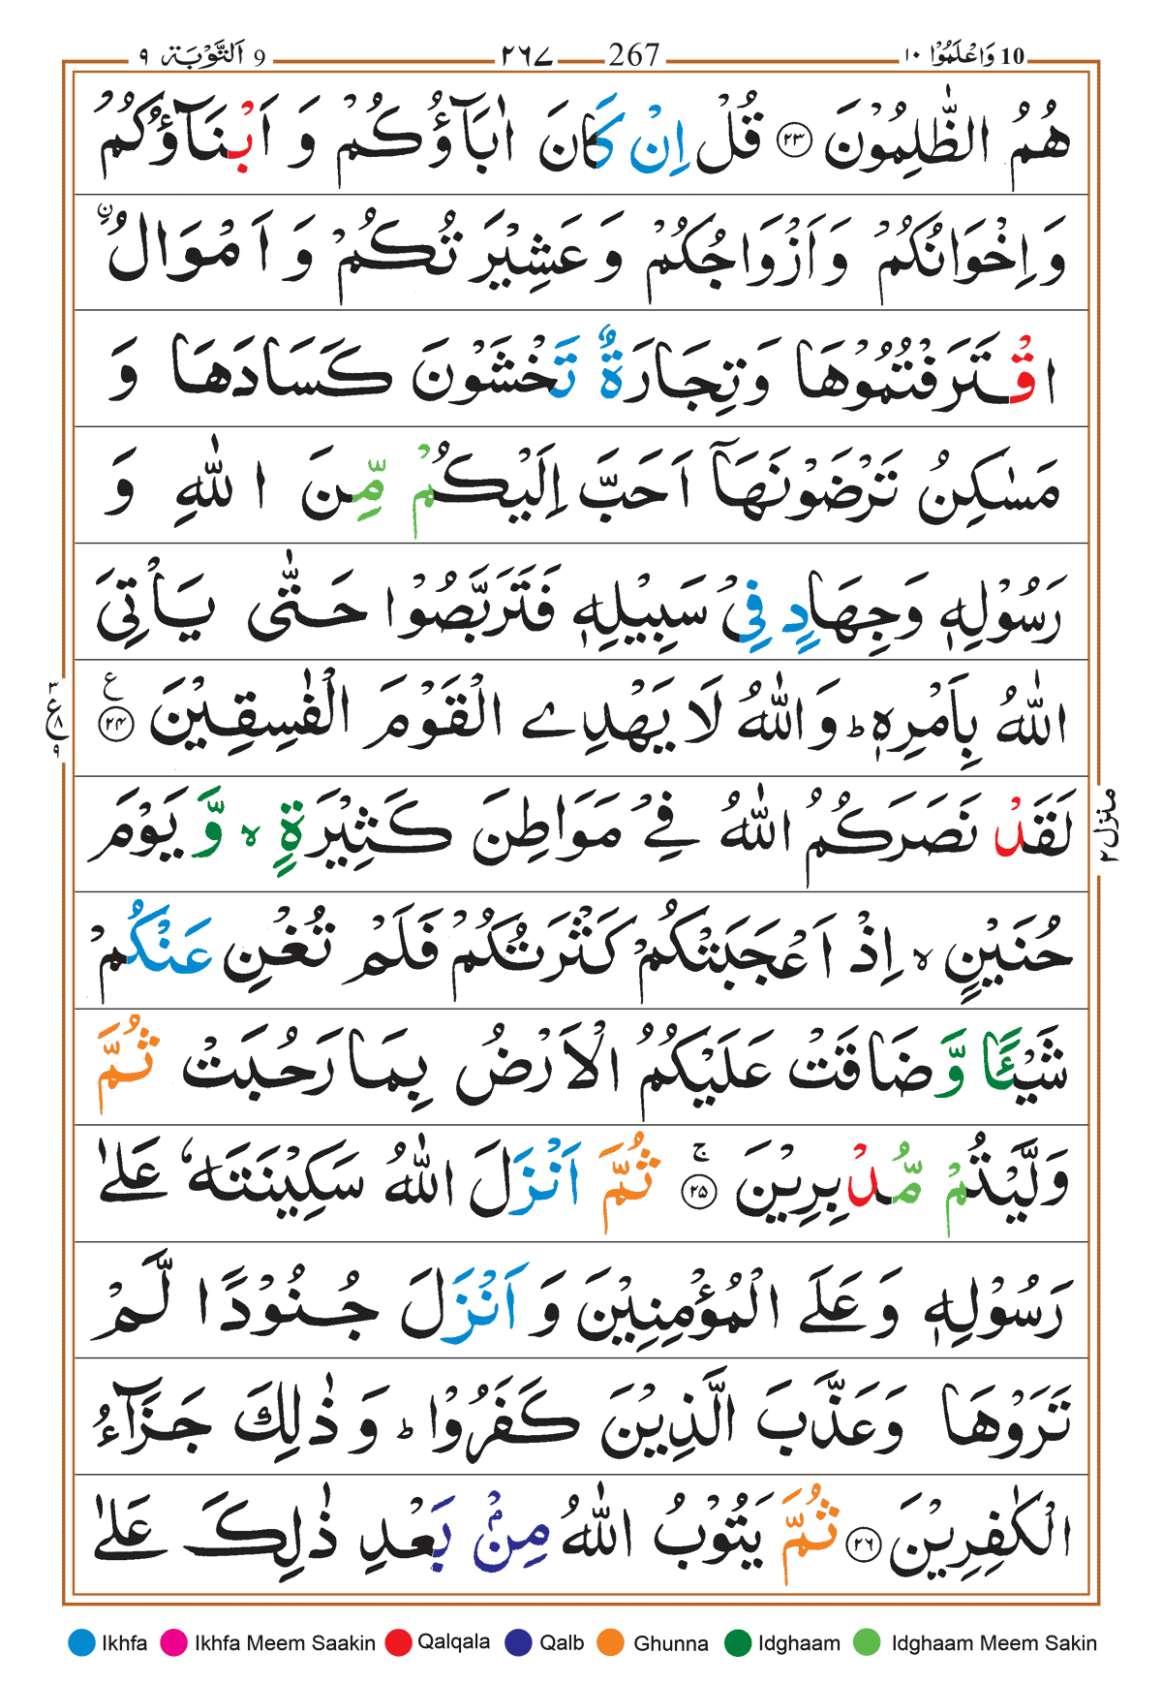 10 وَاعْلَمُوْٓا ١٠ 267 ٢٦٧ 9 اَلتَّوْبَة ٩
هُمُ الظّٰلِمُوْنَ ﴿٢٣﴾ قُلْ اِنْ كَانَ اٰبَآؤُكُمْ وَ اَبْنَآؤُكُمْ
وَاِخْوَانُكُمْ وَاَزْوَاجُكُمْ وَعَشِيْرَتُكُمْ وَ اَمْوَالُ
اۨقْتَرَفْتُمُوْهَا وَتِجَارَةٌ تَخْشَوْنَ كَسَادَهَا وَ
مَسٰكِنُ تَرْضَوْنَهَآ اَحَبَّ اِلَيْكُمْ مِّنَ اللّٰهِ وَ
رَسُوْلِهٖ وَجِهَادٍ فِيْ سَبِيْلِهٖ فَتَرَبَّصُوْا حَتّٰى يَاْتِيَ
اللّٰهُ بِاَمْرِهٖ ؕ وَاللّٰهُ لَا يَهْدِے الْقَوْمَ الْفٰسِقِيْنَ ﴿٢٤﴾ ع
لَقَدْ نَصَرَكُمُ اللّٰهُ فِيْ مَوَاطِنَ كَثِيْرَةٍ ۙ وَّ يَوْمَ
حُنَيْنٍ ۙ اِذْ اَعْجَبَتْكُمْ كَثْرَتُكُمْ فَلَمْ تُغْنِ عَنْكُمْ
شَيْـًٔا وَّضَاقَتْ عَلَيْكُمُ الْاَرْضُ بِمَا رَحُبَتْ ثُمَّ
وَلَّيْتُمْ مُّدْبِرِيْنَ ﴿٢٥﴾ ۚ ثُمَّ اَنْزَلَ اللّٰهُ سَكِيْنَتَهٗ عَلٰى
رَسُوْلِهٖ وَعَلَى الْمُؤْمِنِيْنَ وَ اَنْزَلَ جُنُوْدًا لَّمْ
تَرَوْهَا وَعَذَّبَ الَّذِيْنَ كَفَرُوْا ؕ وَ ذٰلِكَ جَزَآءُ
الْكٰفِرِيْنَ ﴿٢٦﴾ ثُمَّ يَتُوْبُ اللّٰهُ مِنْۢ بَعْدِ ذٰلِكَ عَلٰى
٣ ع ٨ ٩
منزل ٢
Ikhfa Ikhfa Meem Saakin Qalqala Qalb Ghunna Idghaam Idghaam Meem Sakin